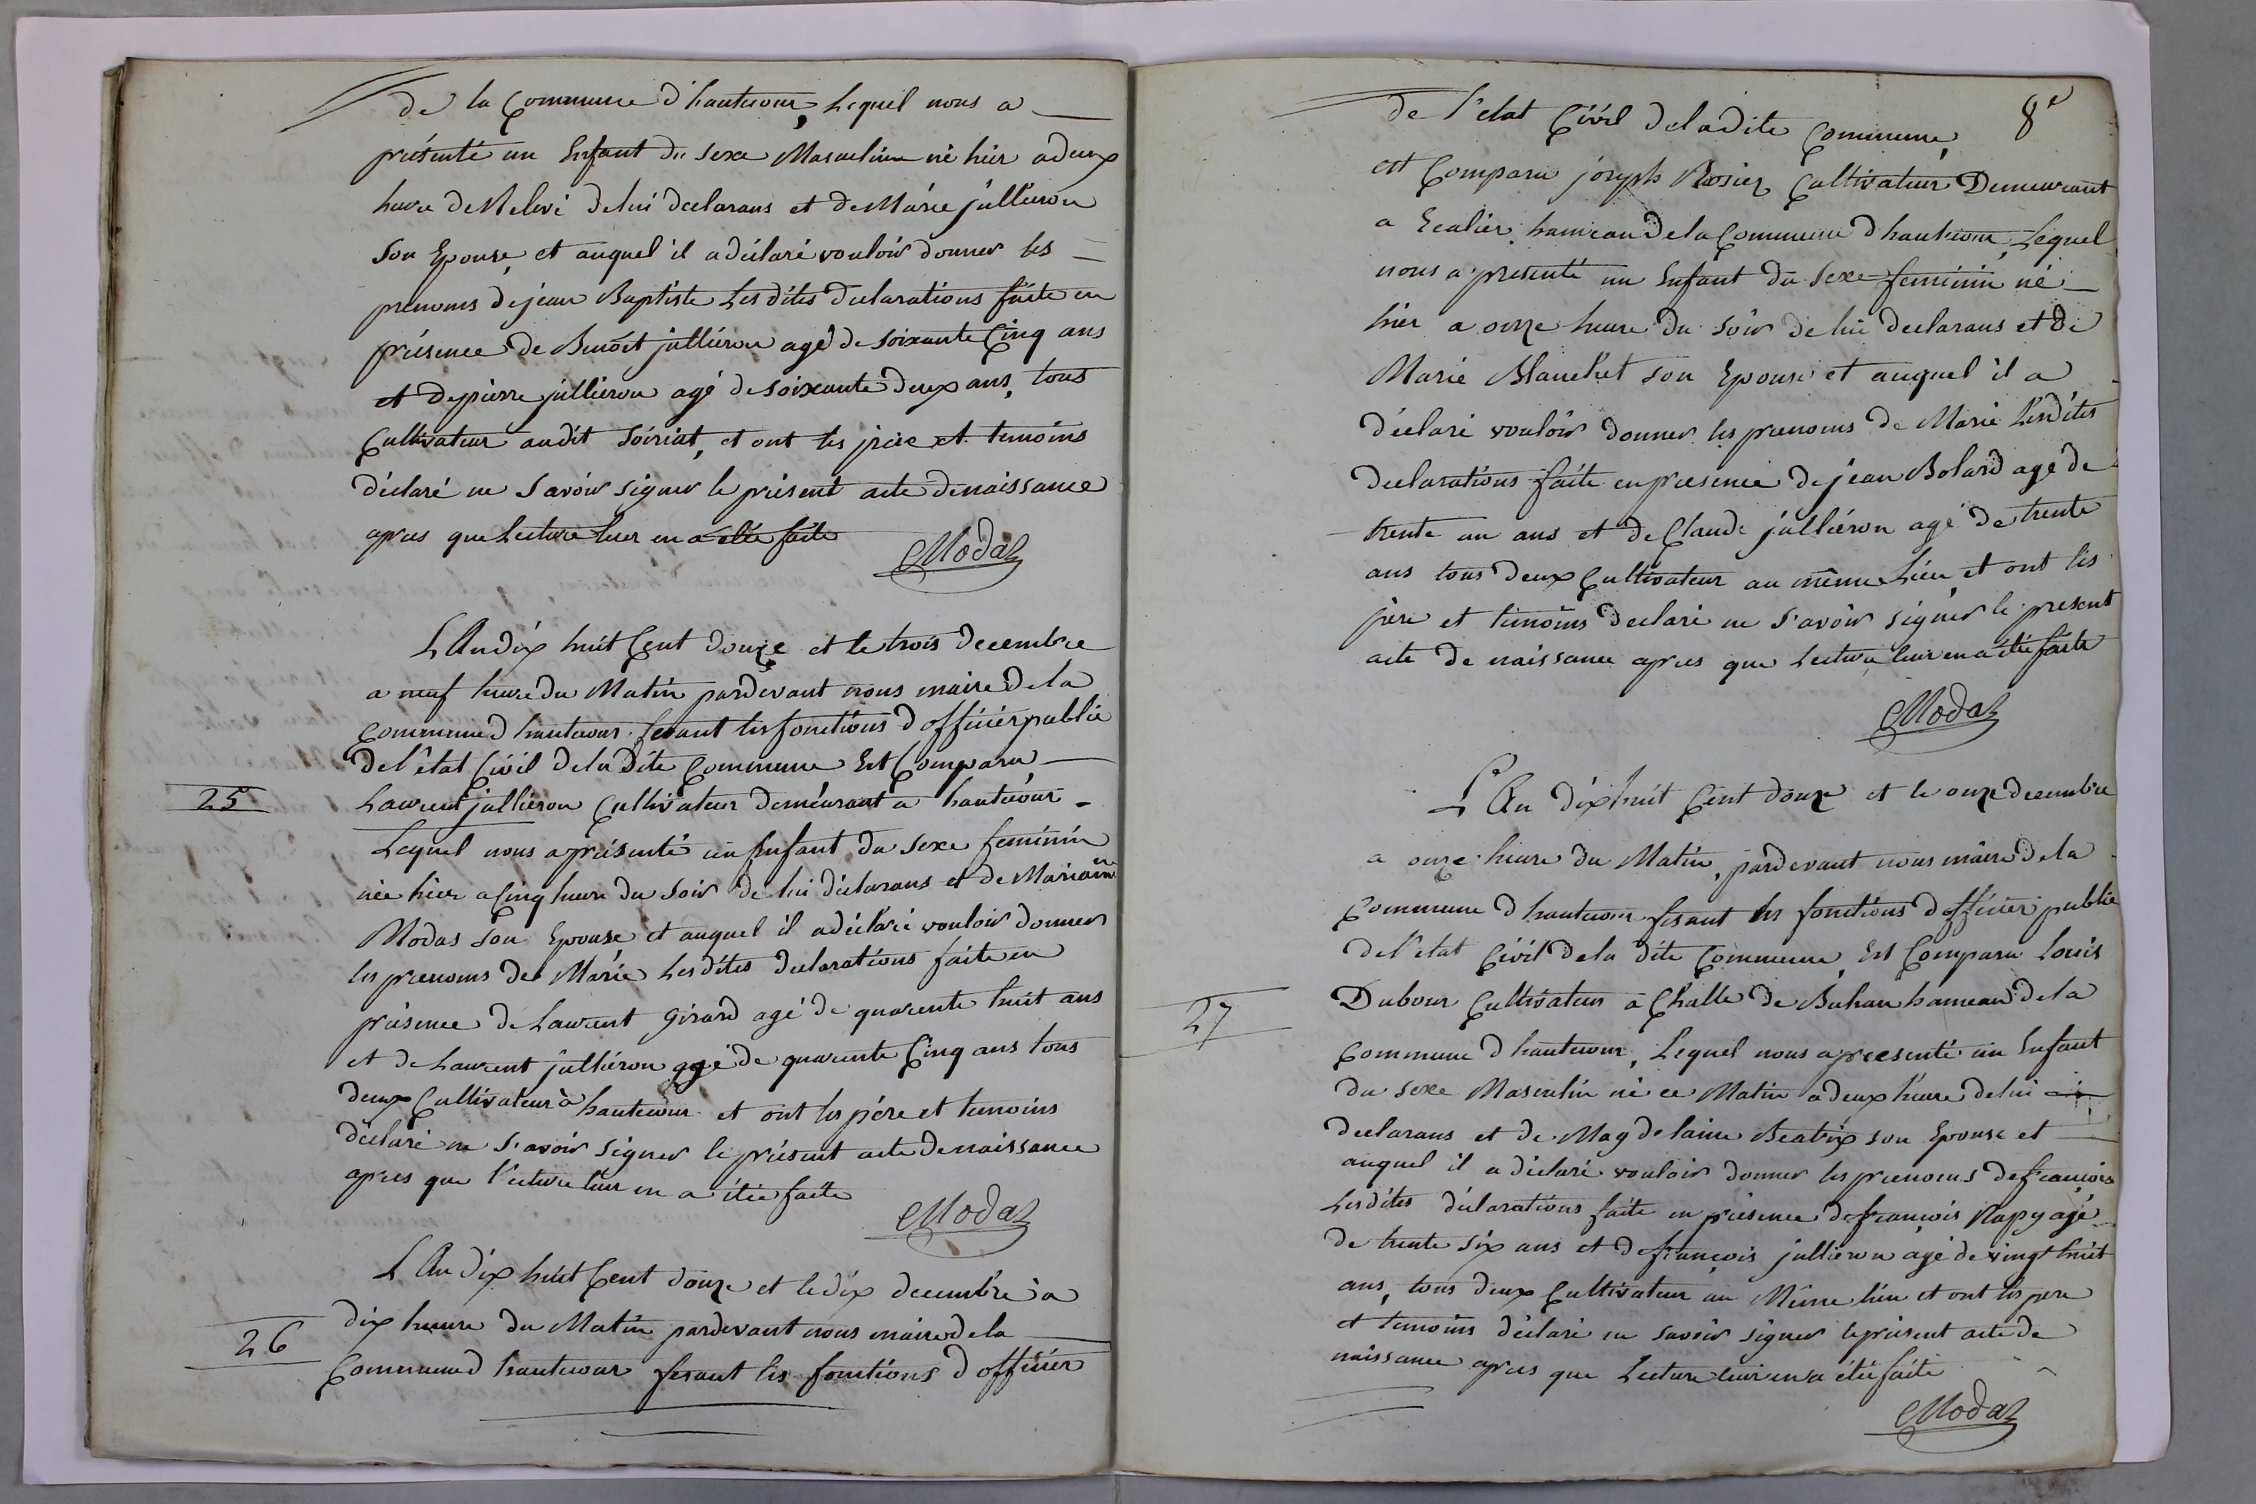 de la Commune d'hautecour, Lequel nous a
présenté un Enfant du Sexe Masculin né hier a deux
heure de Relevé de lui declarans et de Márie jullieron
Son Epouse, et auquel il a déclaré vouloir donner les
prénoms de jean Baptiste Les dites declarations faite en
présence de Benoit jullieron agé de soixante Cinq ans
et de pierre jullieron agé de soixante deux ans, tous
Cultivateur audit Soiriat, et ont les père et temoins
déclaré ne Savoir signer le présent acte de naissance
apres que Lecture leur en a eté faite
Modas
L'An dix huit Cent douze et le trois decembre
a neuf heure du Matin pardevant nous maire de la
Commune d hautecour fesant les fonctions d officier public
de l'état Civil de la Dite Commune Est Comparu
25 Laurent jullieron Cultivateur demeurant a hautecour
Lequel nous a présenté un Enfant du Sexe feminin
née hier a Cinq heure du Soir de lui déclarans et de Mariann
Modas son Epouse et auquel il a déclaré vouloir donner
les prenoms de Márie Les dites declarations faite en
présence de Laurent girard agé de quarente huit ans
et de Laurent jullieron agé de quarente Cinq ans tous
deux Cultivateur à hautecour et ont les pére et temoins
déclaré ne S'avoir signer le présent acte de naissance
apres que l'ecture leur en a étée faite
Modas
L An dix huit Cent douze et le dix decembre à
26 dix heure du Matin pardevant nous maire de la
Commune d hautecour fesant les fonctions d officier
8e
de l'etat Civil de la dite Commune,
est Comparu joseph Rosier Cultivateur Demeurant
a Ecalier hameau de la Commune d hautecour, Lequel
nous a presenté un Enfant du Sexe feminin né
hier a onze heure du Soir de lui declarans et de
Marie Blanchet son Epouse et auquel il a
déclaré vouloir donner les prenoms de Marie Lesdites
declarations faite en presence de jean Bolard agé de
trente un ans et de Claude jullieron agé de trente
ans tous deux Cultivateur au même Lieu et ont les
père et temoins declaré ne S'avoir signer le present
acte de naissance apres que Lecture leur en a étée faite
Modas
L'An dix huit Cent douze et le onze decembre
a onze heure du Matin, pardevant nous maire de la
Commune d hautecour fesant les fonctions d officier public
de l'etat Civil de la dite Commune, Est Comparu Louis
27 Dubour Cultivateur à Challe de Bohan hameau de la
Commune d hautecour, Lequel nous a presenté un Enfant
du Sexe Masculin né ce Matin a deux heure de lui
declarans et de Magdelaine Beatrix son Epouse et
auquel il a déclaré vouloir donner les prenoms de françois
Lesdites déclarations faite en présence de françois Rapy agé
de trente Six ans et de françois jullieron agé de vingt huit
ans, tous deux Cultivateur au Même lieu et ont les pere
et temoins déclaré ne savoir signer le présent acte de
naissance apres que Lecture leur en a étée faite
Modas